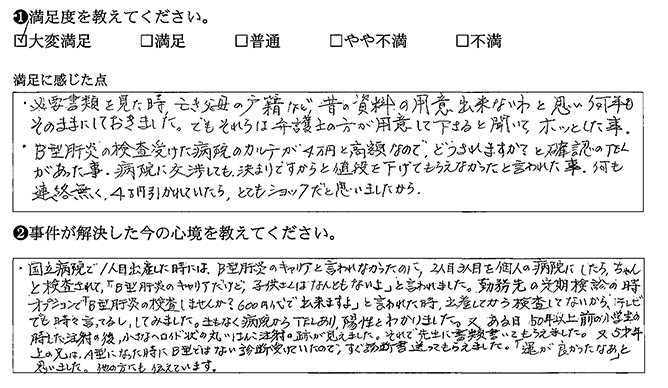 ❶満足度を教えてください。
☑大変満足 □満足 □普通 □やや不満 □不満
満足に感じた点
・必要書類を見た時、亡き父母の戸籍など、昔の資料の用意、出来ないわと思い何年も
そのままにしておきました。でもそれらは弁護士の方が用意して下さると聞いて、ホッとした事。
・B型肝炎の検査受けた病院のカルテが4万円と高額なので、どうされますか?と確認のTEL
があった事。病院に交渉しても、決まりですからと値段を下げてもらえなかったと言われた事。何も
連絡無く、4万円引かれていたら、とてもショックだと思いましたから。
❷事件が解決した今の心境を教えてください。
・国立病院で1人目出産した時には、B型肝炎のキャリアと言われなかったのに、2人目3人目を個人の病院にしたら、ちゃん
と検査されて、「B型肝炎のキャリアだけど、子供さんはなんともないよ」と言われました。勤務先の定期検診の時
オプションで「B型肝炎の検査しませんか?600円代で出来ますよ」と言われた時、出産してから検査してないから、TVで
でも時々言ってるし、してみました。まもなく病院からTELあり、陽性とわかりました。又ある日50年以上前の小学生の
時した注射の後、かさなヘロイド状の丸いはんこ注射の跡が見えました。それで先生に書類書いてもらえました。又5才年
上の兄は、A型になった時にB型ではない診断受けていたので、すぐ診断書送ってもらえました。「運が良かったなあ」と
思いました。他の方にも伝えています。